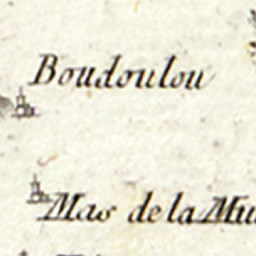 Boudoulou
Mas de la Mu